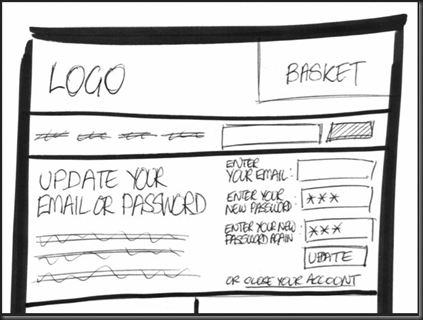 LOGO
BASKET
UPDATE YOUR
EMAIL OR PASSWORD
ENTER
YOUR EMAIL:
ENTER YOUR
NEW PASSWORD:
***
ENTER YOUR NEW
PASSWORD AGAIN:
***
UPDATE
OR CLOSE YOUR ACCOUNT